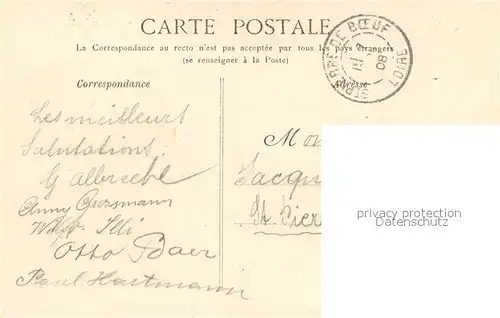 CARTE POSTALE
La Correspondance au recto n'est pas acceptée par tous les pays étrangers
(se renseigner à la Poste)
ST PIERRE DE BŒUF
08
LOIRE
Correspondance
Adresse
Les meilleurs
Salutations
G Albrecht
Anny Grossmann
Otto Baer
Paul Hartmann
Mon
Jacqu
St. Pier
privacy protection
watermark